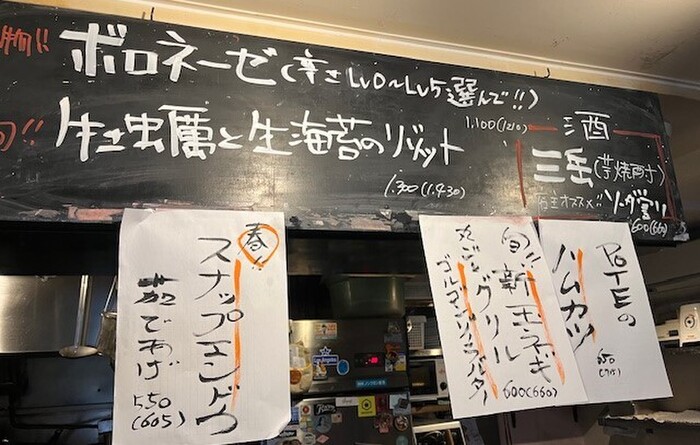 物!!
ボロネーゼ(辛さLv0〜Lv5選んで!!)
1,100(1210)
生牡蠣と生海苔のリゾット
1,300(1,430)
酒
三岳(芋焼酎)
店主オススメ!! ソーダ割り
600(660)
春!
スナップエンドウ
茹であげ
550
(605)
旬!!
新玉ネギ
グリル
ゴルゴンゾーラバター
600(660)
POTEの
ハムカツ
650
(715)